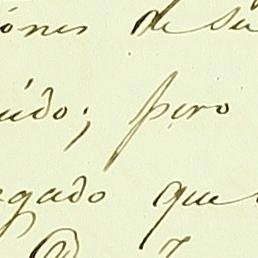 ónes de su
uido; pero
egado que